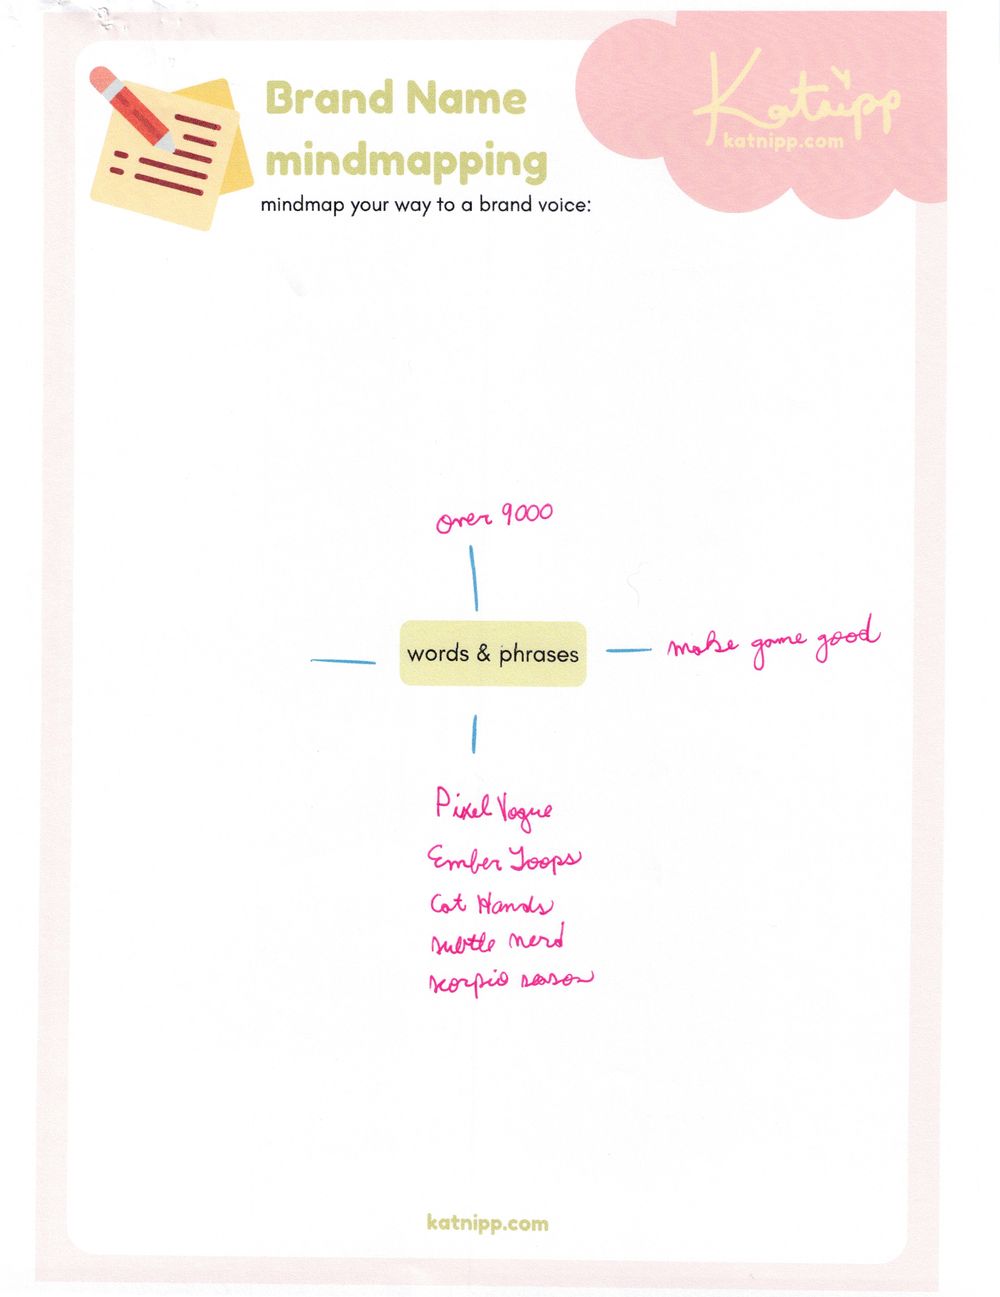 Brand Name
mindmapping
mindmap your way to a brand voice:
Katnipp
katnipp.com
over 9000
words & phrases
make game good
Pixel Vogue
Ember Loops
Cat Hands
subtle nerd
skorpio season
katnipp.com